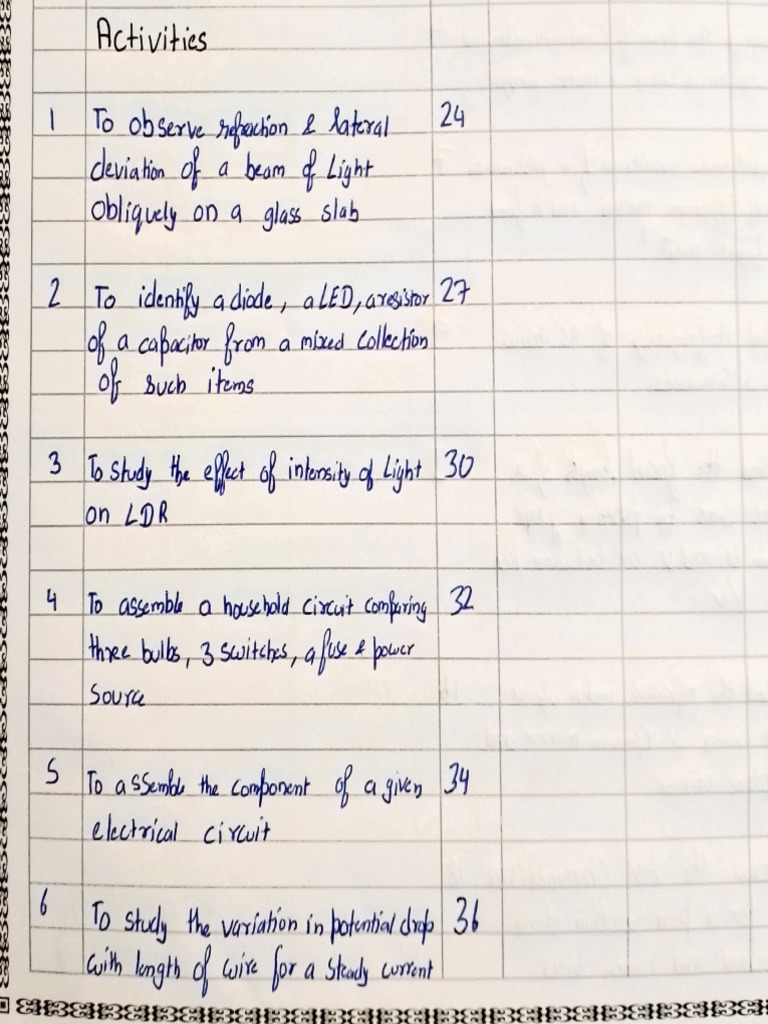 Activities
1 To observe refraction & lateral 24
deviation of a beam of Light
Obliquely on a glass slab
2 To identify a diode, a LED, a resistor 27
of a capacitor from a mixed collection
of such items
3 To study the effect of intensity of Light 30
on LDR
4 To assemble a household circuit comparing 32
three bulbs, 3 switches, a fuse & power
source
5 To assemble the component of a given 34
electrical circuit
6 To study the variation in potential drop 36
with length of wire for a steady current